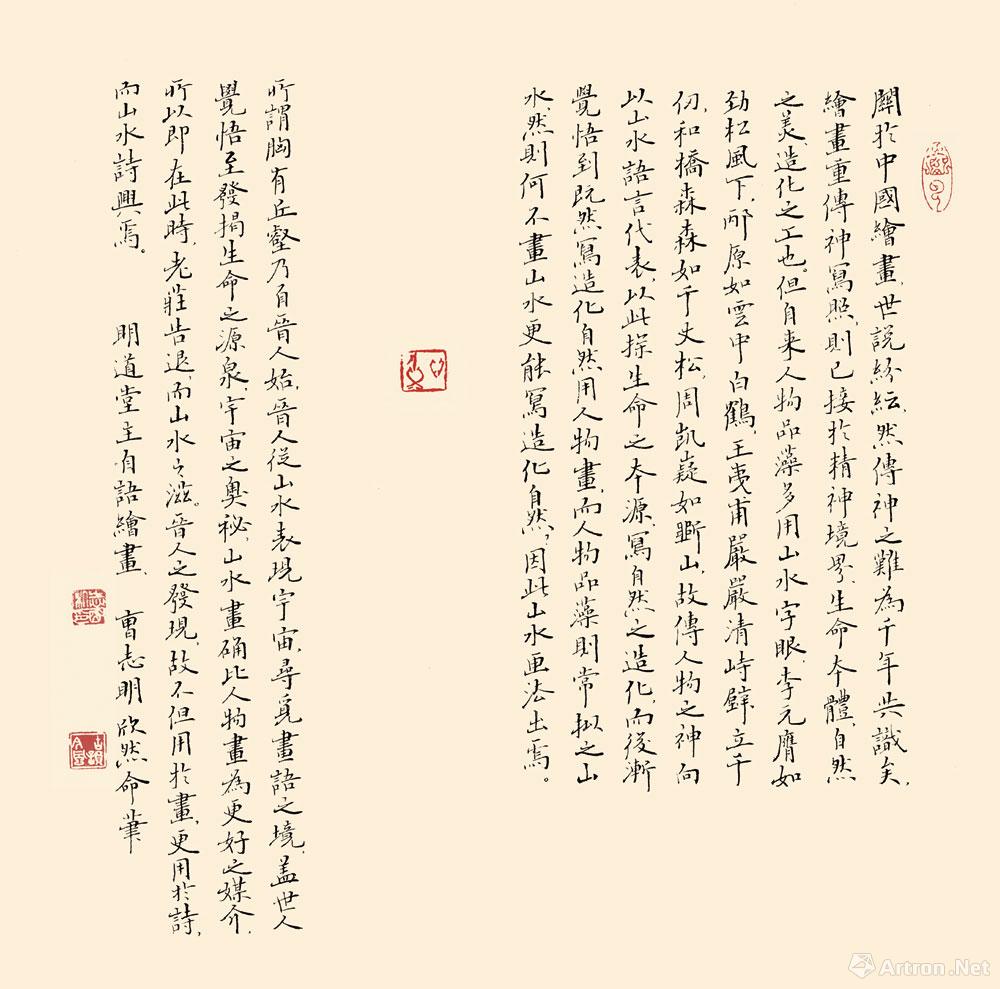 關於中國繪畫，世說紛紜，然傳神之難為千年共識矣，
繪畫重傳神寫照，則已接於精神境界，生命本體，自然
之美，造化之工也。但自來人物品藻多用山水字眼，李元膺如
勁松風下，邴原如雲中白鶴，王夷甫嚴嚴清峙，壁立千
仞，和橋森森如千丈松，周凱嶷如斷山，故傳人物之神向
以山水語言代表，以此探生命之本源，寫自然之造化，而後漸
覺悟到既然寫造化自然用人物畫，而人物品藻則常擬之山
水，然則何不畫山水更能寫造化自然，因此山水画法出焉。
所謂胸有丘壑乃自晉人始，晉人從山水表現宇宙，尋覓畫語之境，盖世人
覺悟至發揭生命之源泉，宇宙之奧秘，山水畫确比人物畫為更好之媒介，
所以即在此時，老莊告退而山水之滋。晉人之發現，故不但用於畫，更用於詩，
而山水詩興焉。 明道堂主自語繪畫，曹志明欣然命筆
Artron.Net